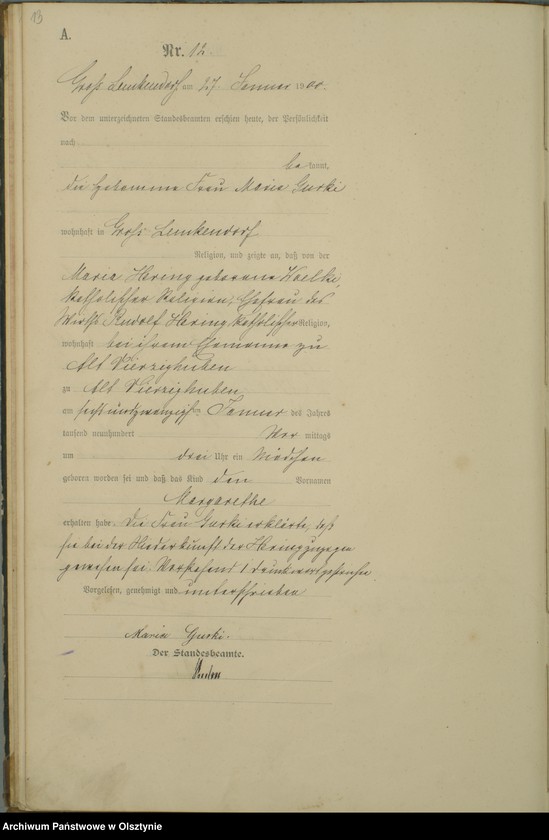 13
A.
Nr. 12.
Groß Lemkendorf am 27. Januar 1900.
Vor dem unterzeichneten Standesbeamten erschien heute, der Persönlichkeit
nach
be kannt,
die Hebamme Frau Maria Gurki
wohnhaft in Groß Lemkendorf
Religion, und zeigte an, daß von der
Maria Hering geborene
katholischer Religion, Ehefrau des
Wirths Rudolf Hering katholischer Religion,
wohnhaft bei ihrem Ehemanne zu
Alt Vierzighuben
zu Alt Vierzighuben
am sechsundzwanzigsten Januar des Jahres
tausend neunhundert Vor mittags
um drei Uhr ein Mädchen
geboren worden sei und daß das Kind den Vornamen
Margarethe
erhalten habe. Die Frau Gurki erklärte, daß
sie bei der Niederkunft der Hering zugegen
gewesen sei. Vorstehend 1 Druckwort gestrichen.
Vorgelesen, genehmigt und unterschrieben
Maria Gurki.
Der Standesbeamte.
Archiwum Państwowe w Olsztynie